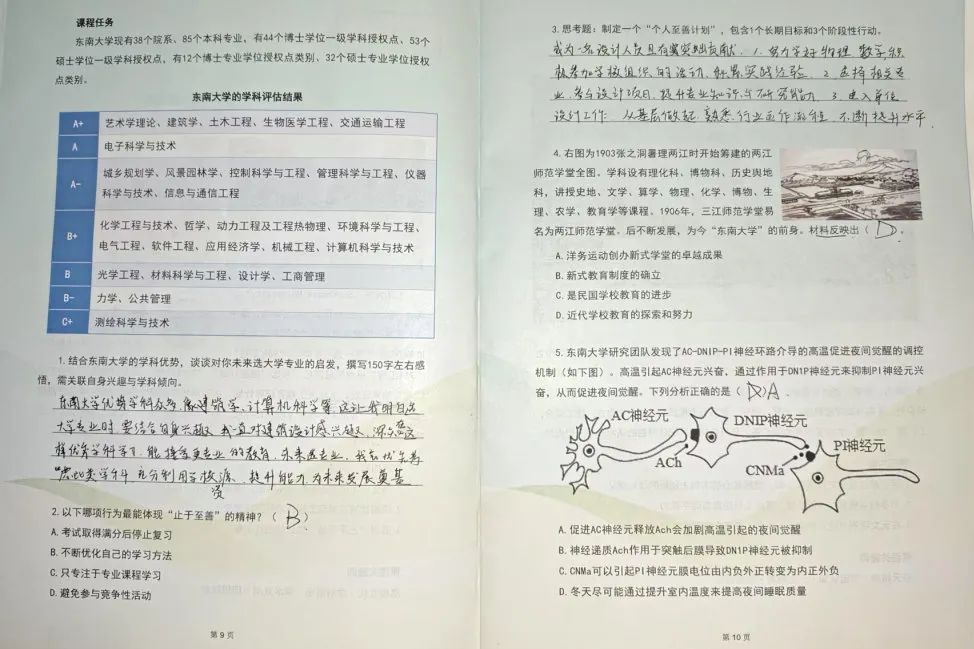 课程任务
东南大学现有38个院系、85个本科专业，有44个博士学位一级学科授权点、53个
硕士学位一级学科授权点，有12个博士专业学位授权点类别、32个硕士专业学位授权
点类别。
东南大学的学科评估结果
A+ 艺术学理论、建筑学、土木工程、生物医学工程、交通运输工程
A 电子科学与技术
A- 城乡规划学、风景园林学、控制科学与工程、管理科学与工程、仪器
科学与技术、信息与通信工程
B+ 化学工程与技术、哲学、动力工程及工程热物理、环境科学与工程、
电气工程、软件工程、应用经济学、机械工程、计算机科学与技术
B 光学工程、材料科学与工程、设计学、工商管理
B- 力学、公共管理
C+ 测绘科学与技术
1. 结合东南大学的学科优势，谈谈对你未来选大学专业的启发，撰写150字左右感
悟，需关联自身兴趣与学科倾向。
东南大学优势学科众多，像建筑学、计算机科学等，这让我明白选
大学专业时要结合自身兴趣，我一直对建筑设计感兴趣，深知在这
样优势学科学习，能接受更专业的教育，未来选专业，我会优先考
虑此类学科，充分利用学校资源，提升能力，为未来发展奠基
2. 以下哪项行为最能体现“止于至善”的精神？（ B ）
A. 考试取得满分后停止复习
B. 不断优化自己的学习方法
C. 只专注于专业课程学习
D. 避免参与竞争性活动
第 9 页
3. 思考题：制定一个“个人至善计划”，包含1个长期目标和3个阶段性行动。
成为一名设计人员且有冀突出贡献. 1. 努力学好物理 数学 积
极参加学校组织的活动，积累实践经验. 2. 选择相关专
业，参与设计项目，提升专业知识与研究能力. 3. 进入单位
设计工作，从基层做起，熟悉行业运作流程，不断提升水平.
4. 右图为1903张之洞署理两江时开始筹建的两江
师范学堂全图。学科设有理化科、博物科、历史舆地
科，讲授史地、文学、算学、物理、化学、博物、生
理、农学、教育学等课程。1906年，三江师范学堂易
名为两江师范学堂。后不断发展，为今“东南大学”的前身。材料反映出（ D ）。
A. 洋务运动创办新式学堂的卓越成果
B. 新式教育制度的确立
C. 是民国学校教育的进步
D. 近代学校教育的探索和努力
5. 东南大学研究团队发现了AC-DNIP-PI神经环路介导的高温促进夜间觉醒的调控
机制（如下图）。高温引起AC神经元兴奋，通过作用于DN1P神经元来抑制PI神经元兴
奋，从而促进夜间觉醒。下列分析正确的是（ D ）A.
AC神经元
DNIP神经元
PI神经元
ACh
CNMa
A. 促进AC神经元释放Ach会加剧高温引起的夜间觉醒
B. 神经递质Ach作用于突触后膜导致DN1P神经元被抑制
C. CNMa可以引起PI神经元膜电位由内负外正转变为内正外负
D. 冬天尽可能通过提升室内温度来提高夜间睡眠质量
第 10 页